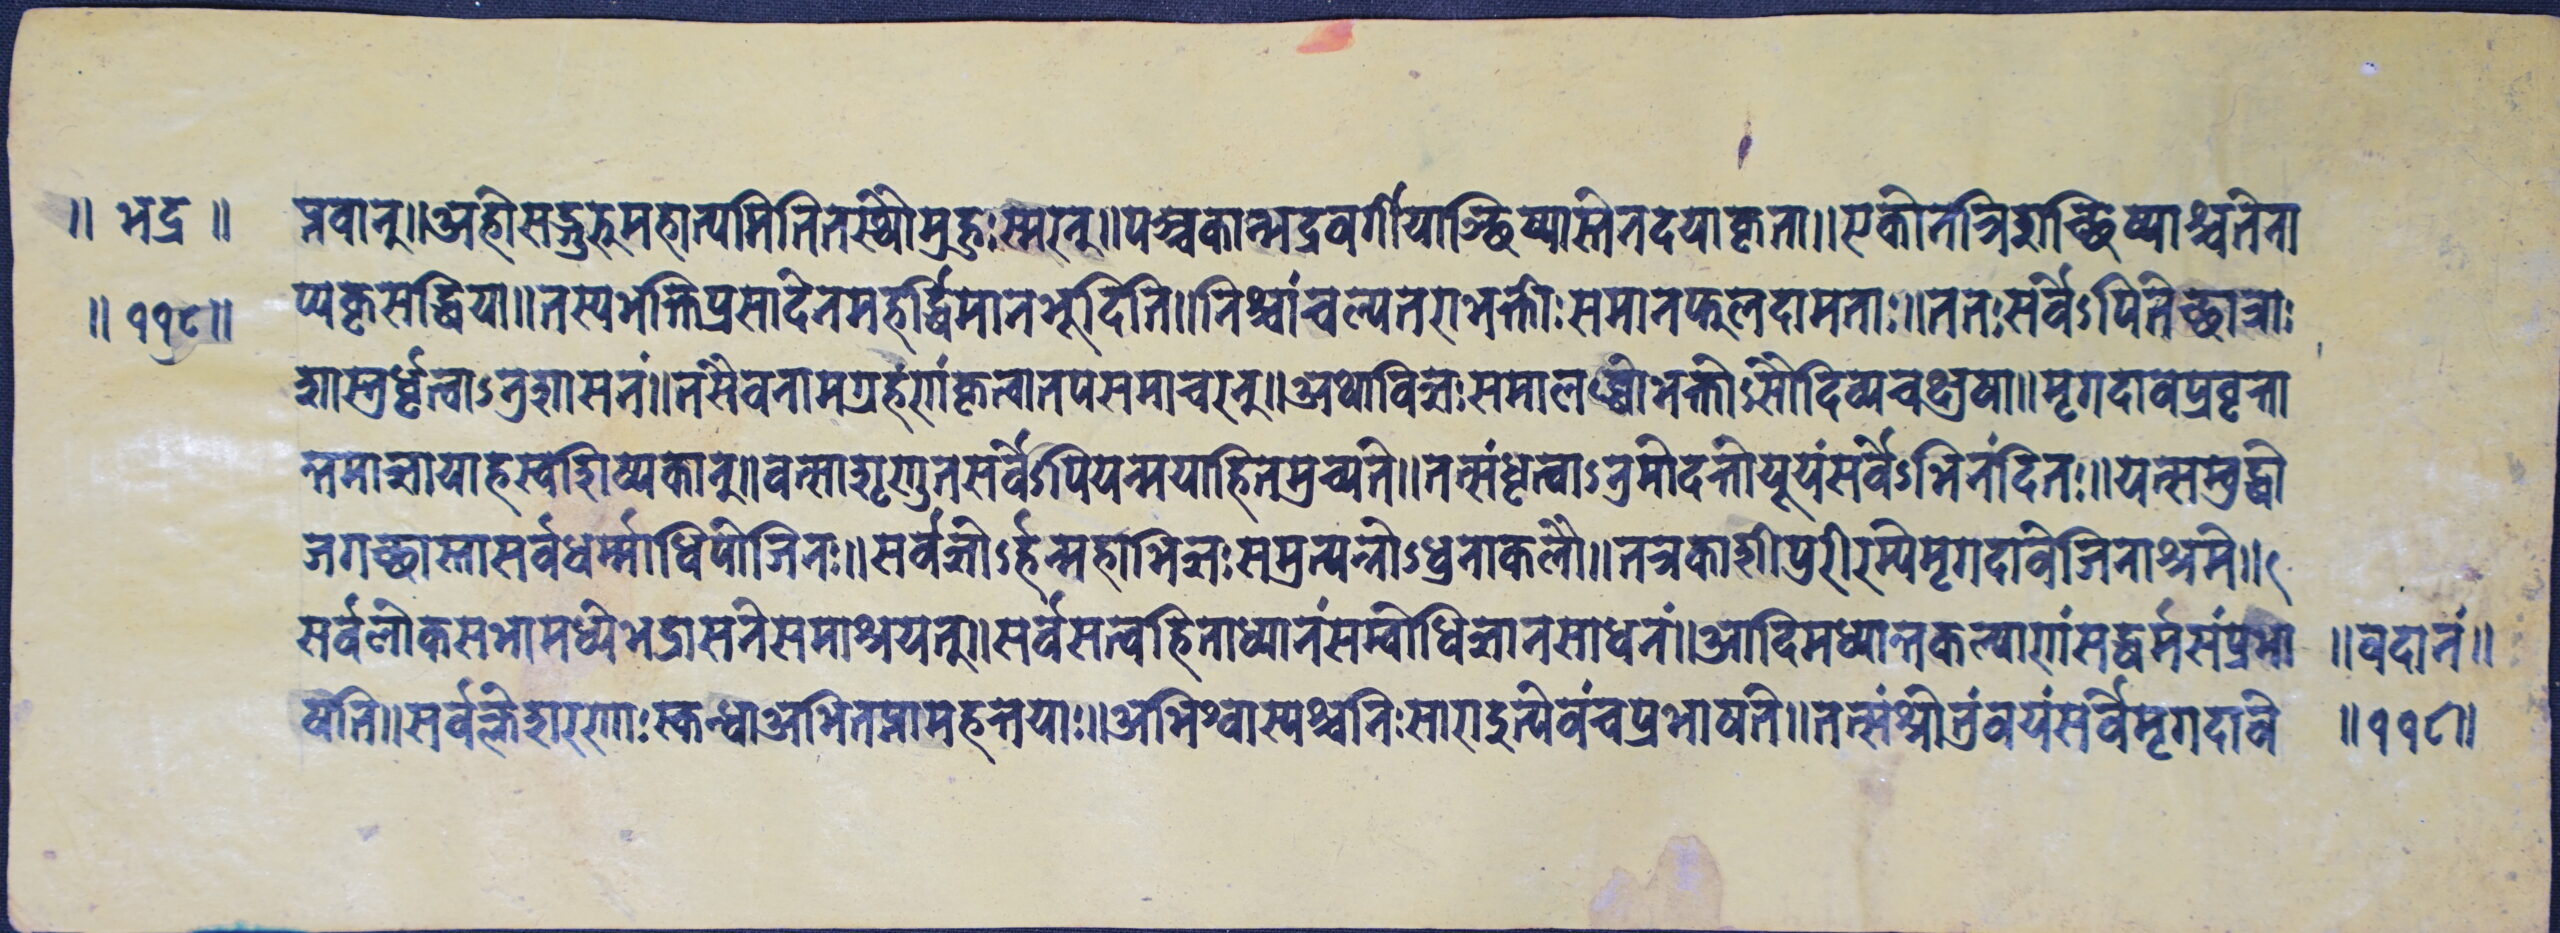 ॥ भद्र ॥ त्नवान्॥अहोसद्गुरुमहात्यमितितस्थौमुहुःस्मरन्॥पञ्चकान्भद्रवर्गीयाञ्छिष्यास्तेनदयाकृता॥एकोनत्रिशच्छिष्याश्चतेना
॥ ११८॥ प्यकृसद्धिया॥तस्यभक्तिप्रसादेनमहर्द्धिमानभूदिति॥निश्चांचल्यतराभक्तोःसमानफुलदामताः॥ततःसर्वेऽपितेच्छात्राः
शास्तुर्धृत्वाऽनुशासनं॥तसैवनामग्रहणंकृत्वातपसमाचरन्॥अथाविज्ञःसमालब्धोभक्तोऽसौदिव्यचक्षुषा॥मृगदावप्रवृत्ता
न्तमाज्ञायाहस्वशिष्यकान्॥वत्साशृणुतसर्वेऽपियन्मयाहितमुच्यते॥तत्संधृत्वाऽनुमोदन्तोयूयंसर्वेऽभिनंदितः॥यत्सम्बुद्धो
जगच्छास्तासर्वधर्म्माधिपोजिनः॥सर्वज्ञोऽर्हन्महाभिज्ञःसमुत्पन्नोऽधुनाकलौ॥तत्रकाशीपुरीरम्येमृगदावेजिनाश्रमे॥
सर्वलोकसभामध्येभद्रासनेसमाश्रयन्॥सर्वसत्वहिताध्यानंसम्बोधिज्ञानसाधनं॥आदिमध्यान्तकल्याणंसद्धर्मसंप्रभा ॥वदानं॥
षति॥सर्वक्लेशारणाःस्कन्धाअभितप्तामहत्तयाः॥अभिश्वास्यश्चनिःसारादुत्येवंचप्रभाषते॥तत्संश्रोतुंवयंसर्वेमृगदावे ॥११८॥